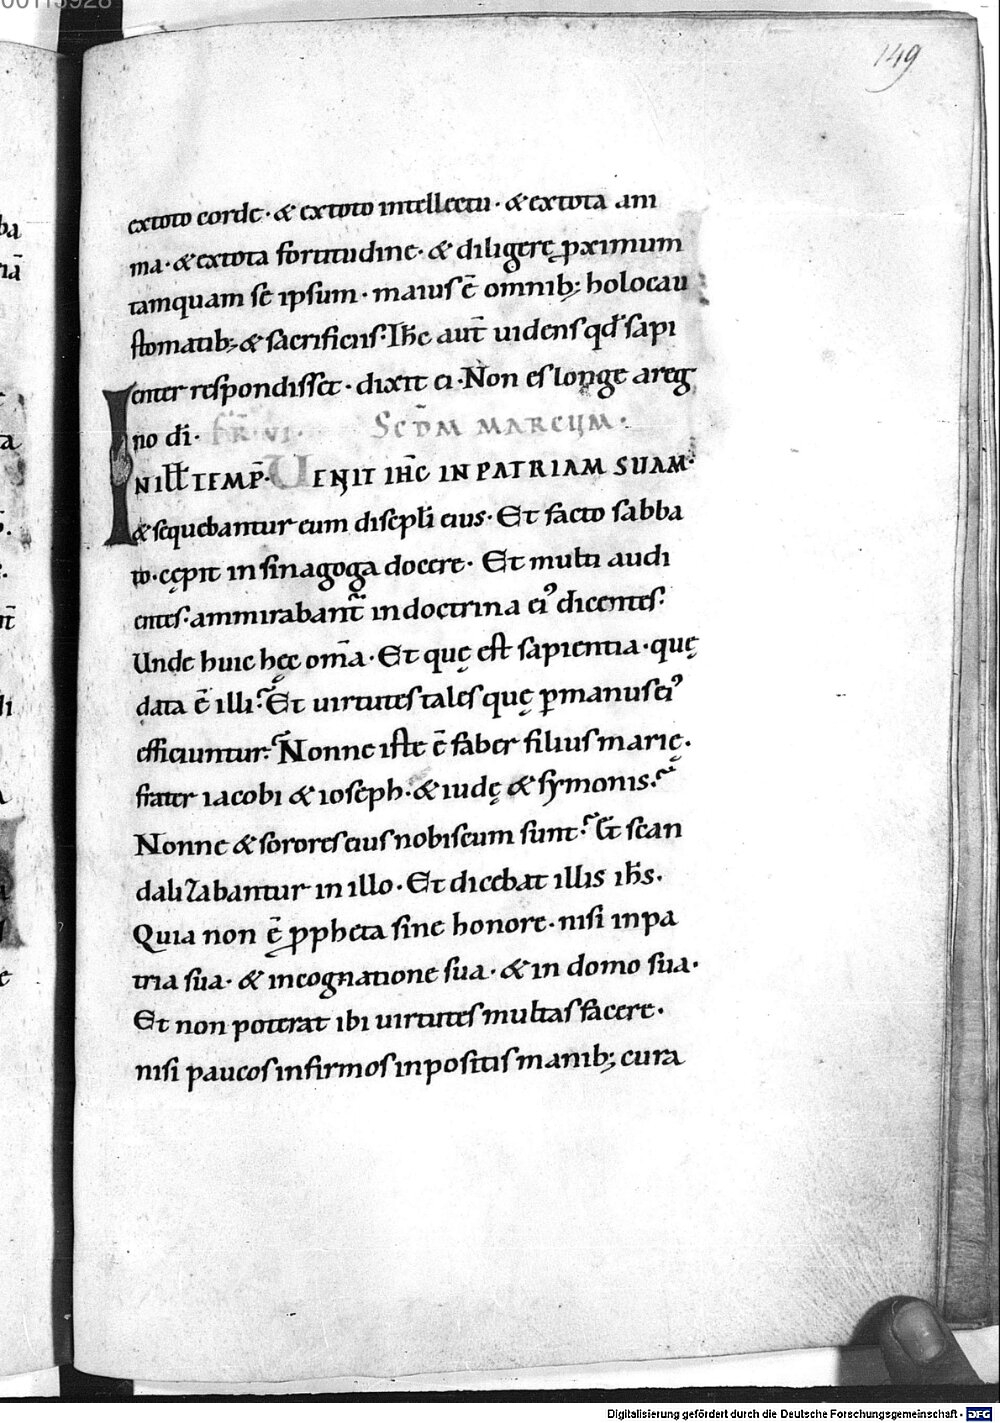 00113928
149
ba
iā
ta
li
extoto corde · & extoto intellectu · & extota ani
ma · & extota fortitudine · & diligere ꝓximum
tamquam se ipsum · maius ē omnib; holocau
stomatib; & sacrificiis · Ihc̄ aut̄ uidens qđ sapi
enter respondisset · dixit ei · Non es longe areg
no dī · FR̄ · VI · SCD̄M MARCUM ·
INILL̄ TEMP̄ · UENIT IHC̄ IN PATRIAM SUAM ·
& sequebantur eum discipl̄i eius · Et facto sabba
to · cępit in sinagoga docere · Et multi audi
entes · ammirabant̄ in doctrina ei⁹ dicentes ·
Unde huic hęc om̄a · Et quę est sapientia · quę
data ē illi? Et uirtutes tales quę ꝑmanus ei⁹
efficiuntur? Nonne iste ē faber filius marię ·
frater iacobi & ioseph · & iudę & symonis?
Nonne & sorores eius nobiscum sunt? Et scan
dalizabantur in illo · Et dicebat illis ih̄s ·
Quia non ē ꝓpheta sine honore · nisi inpa
tria sua · & incognatione sua · & in domo sua ·
Et non poterat ibi uirtutes multas facere ·
nisi paucos infirmos inpositis manib; cura
Digitalisierung gefördert durch die Deutsche Forschungsgemeinschaft - DFG